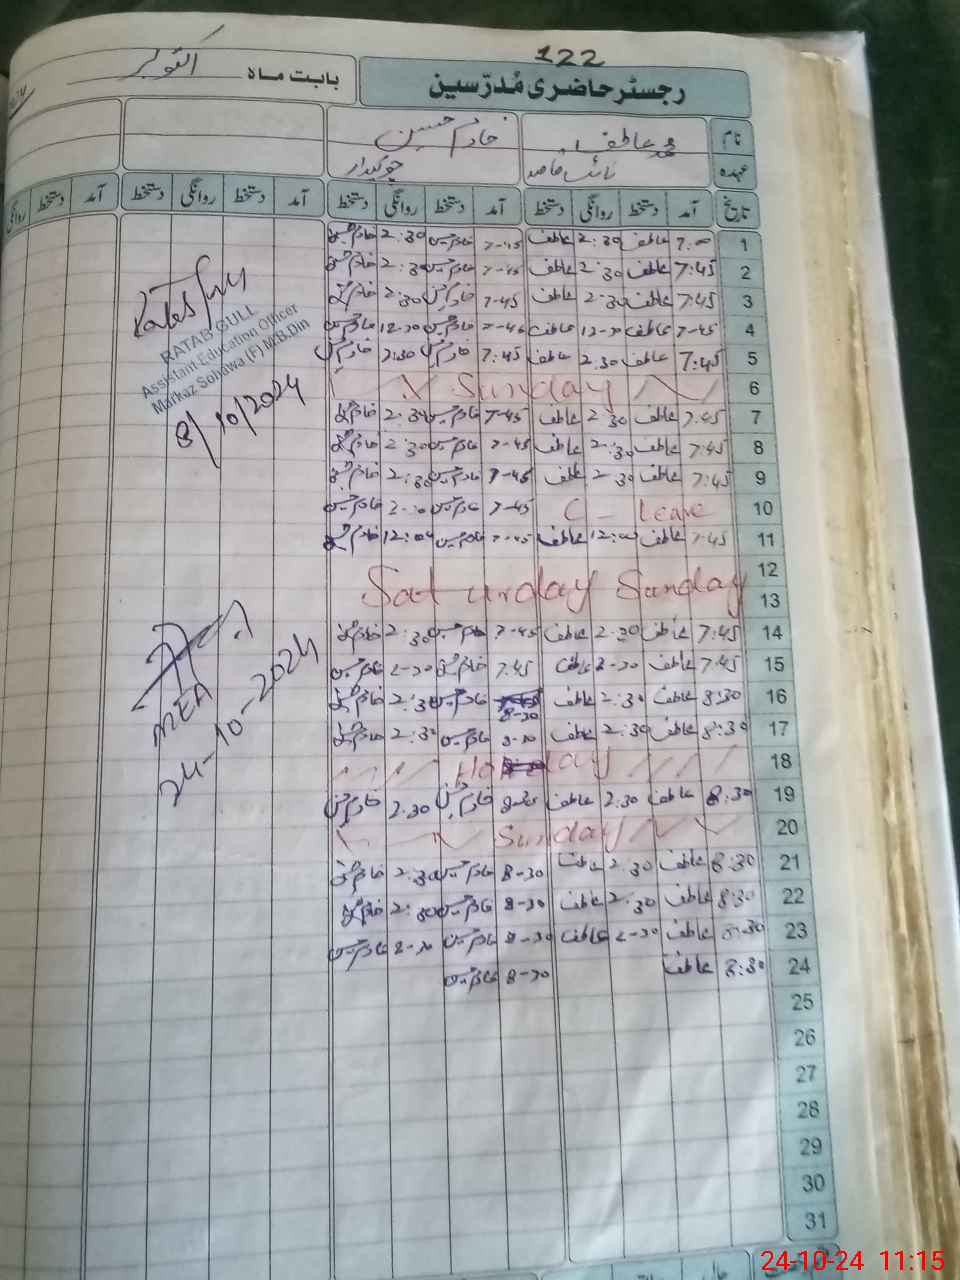 122
رجسٹر حاضری مُدرّسین
بابت ماہ اکتوبر
نام محمد عاطف خادم حسین
عہدہ نائب قاصد چوکیدار
تاریخ آمد دستخط روانگی دستخط آمد دستخط روانگی دستخط آمد دستخط روانگی دستخط آمد دستخط روانگی
1 عاطف 2:30 عاطف 7-45 خادم حسین 2:30 خادم حسین
2 7:45 عاطف 2:30 عاطف 7-45 خادم حسین 2:30 خادم حسین
3 7:45 عاطف 2:30 عاطف 7-45 خادم حسین 2:30 خادم حسین
4 7-45 عاطف 12-30 عاطف 7-45 خادم حسین 12-30 خادم حسین
5 7:45 عاطف 2:30 عاطف 7:45 خادم حسین 2:30 خادم حسین
6 Sunday
7 7:45 عاطف 2:30 عاطف 7-45 خادم حسین 2:30 خادم حسین
8 7:45 عاطف 2:30 عاطف 7-45 خادم حسین 2:30 خادم حسین
9 7:45 عاطف 2-30 عاطف 7-45 خادم حسین 2:30 خادم حسین
10 C - leave 7-45 خادم حسین 2:30 خادم حسین
11 7-45 عاطف 12:00 عاطف 7-45 خادم حسین 12:00 خادم حسین
12 Saturday Sunday
13
14 7:45 عاطف 2:30 عاطف 7-45 خادم حسین 2:30 خادم حسین
15 7:45 عاطف 2-30 عاطف 7:45 خادم حسین 2-30 خادم حسین
16 8:30 عاطف 2:30 عاطف 8-30 خادم حسین 2:30 خادم حسین
17 8:30 عاطف 2:30 عاطف 8-30 خادم حسین 2:30 خادم حسین
18 Holiday
19 8:30 عاطف 2:30 عاطف خادم حسین 2:30 خادم حسین
20 Sunday
21 8:30 عاطف 2:30 عاطف 8-30 خادم حسین 2:30 خادم حسین
22 8:30 عاطف 2:30 عاطف 8-30 خادم حسین 2:30 خادم حسین
23 8:30 عاطف 2-30 عاطف 8-30 خادم حسین 2-30 خادم حسین
24 8:30 عاطف 8-30 خادم حسین
25
26
27
28
29
30
31
RATAB GULL
Assistant Education Officer
Markaz Sohawa (F) M.B.Din
8/10/2024
MEA
24-10-2024
24-10-24 11:15